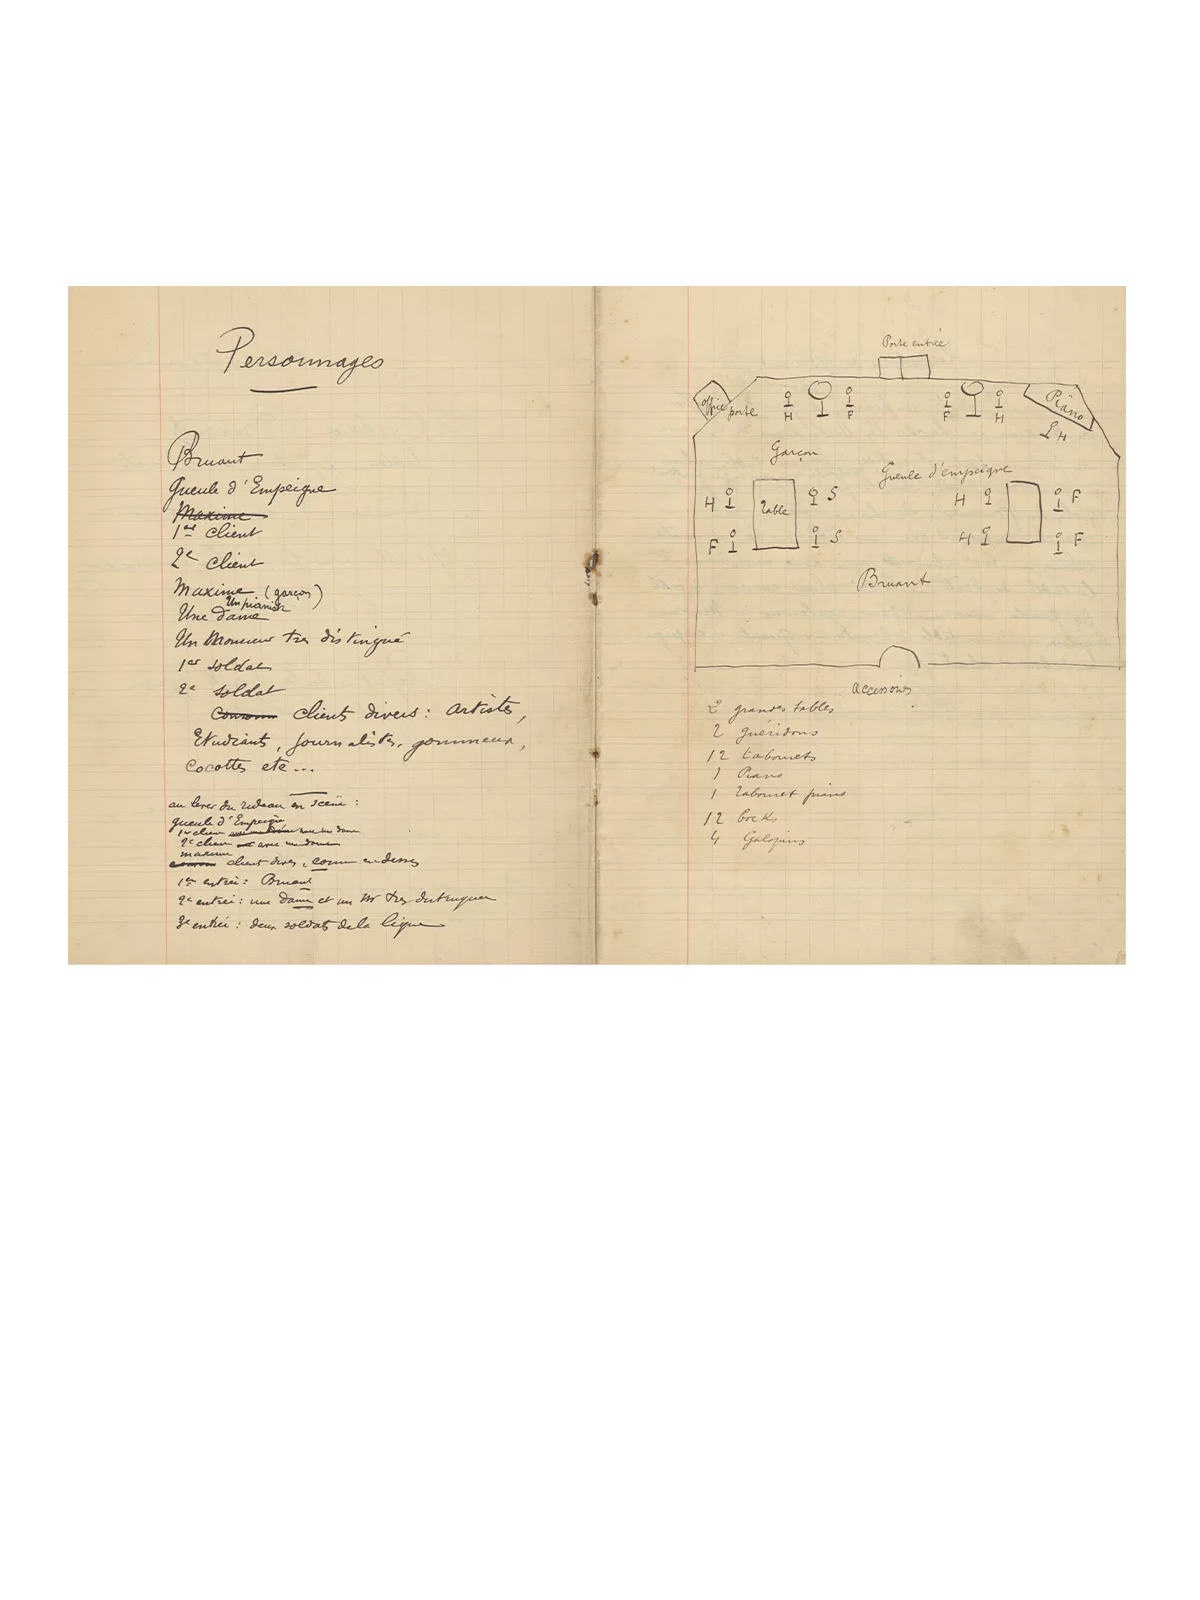 Personnages
Bruant
Gueule d'Empeigne
Maxime
1er client
2e client
Maxime (garçon)
Un pianiste
Une dame
Un Monsieur très distingué
1er soldat
2e soldat
clients divers : artistes,
Etudiants, journalistes, gommeux,
Cocottes etc...
au lever du rideau en scène :
gueule d'Empeigne
1er client avec une dame
2e client avec une dame
maxime
client divers, comm en dessus
1re entrée : Bruant
2e entrée : une dame et un Mr très distingué
3e entrée : deux soldats de la ligne
Porte entrée
office porte
H F F H
Piano
H
Garçon
Gueule d'empeigne
H Table S H F
F S H F
Bruant
accessoires
2 grandes tables
2 guéridons
12 tabourets
1 Piano
1 tabouret piano
12 bocks
4 Galopins